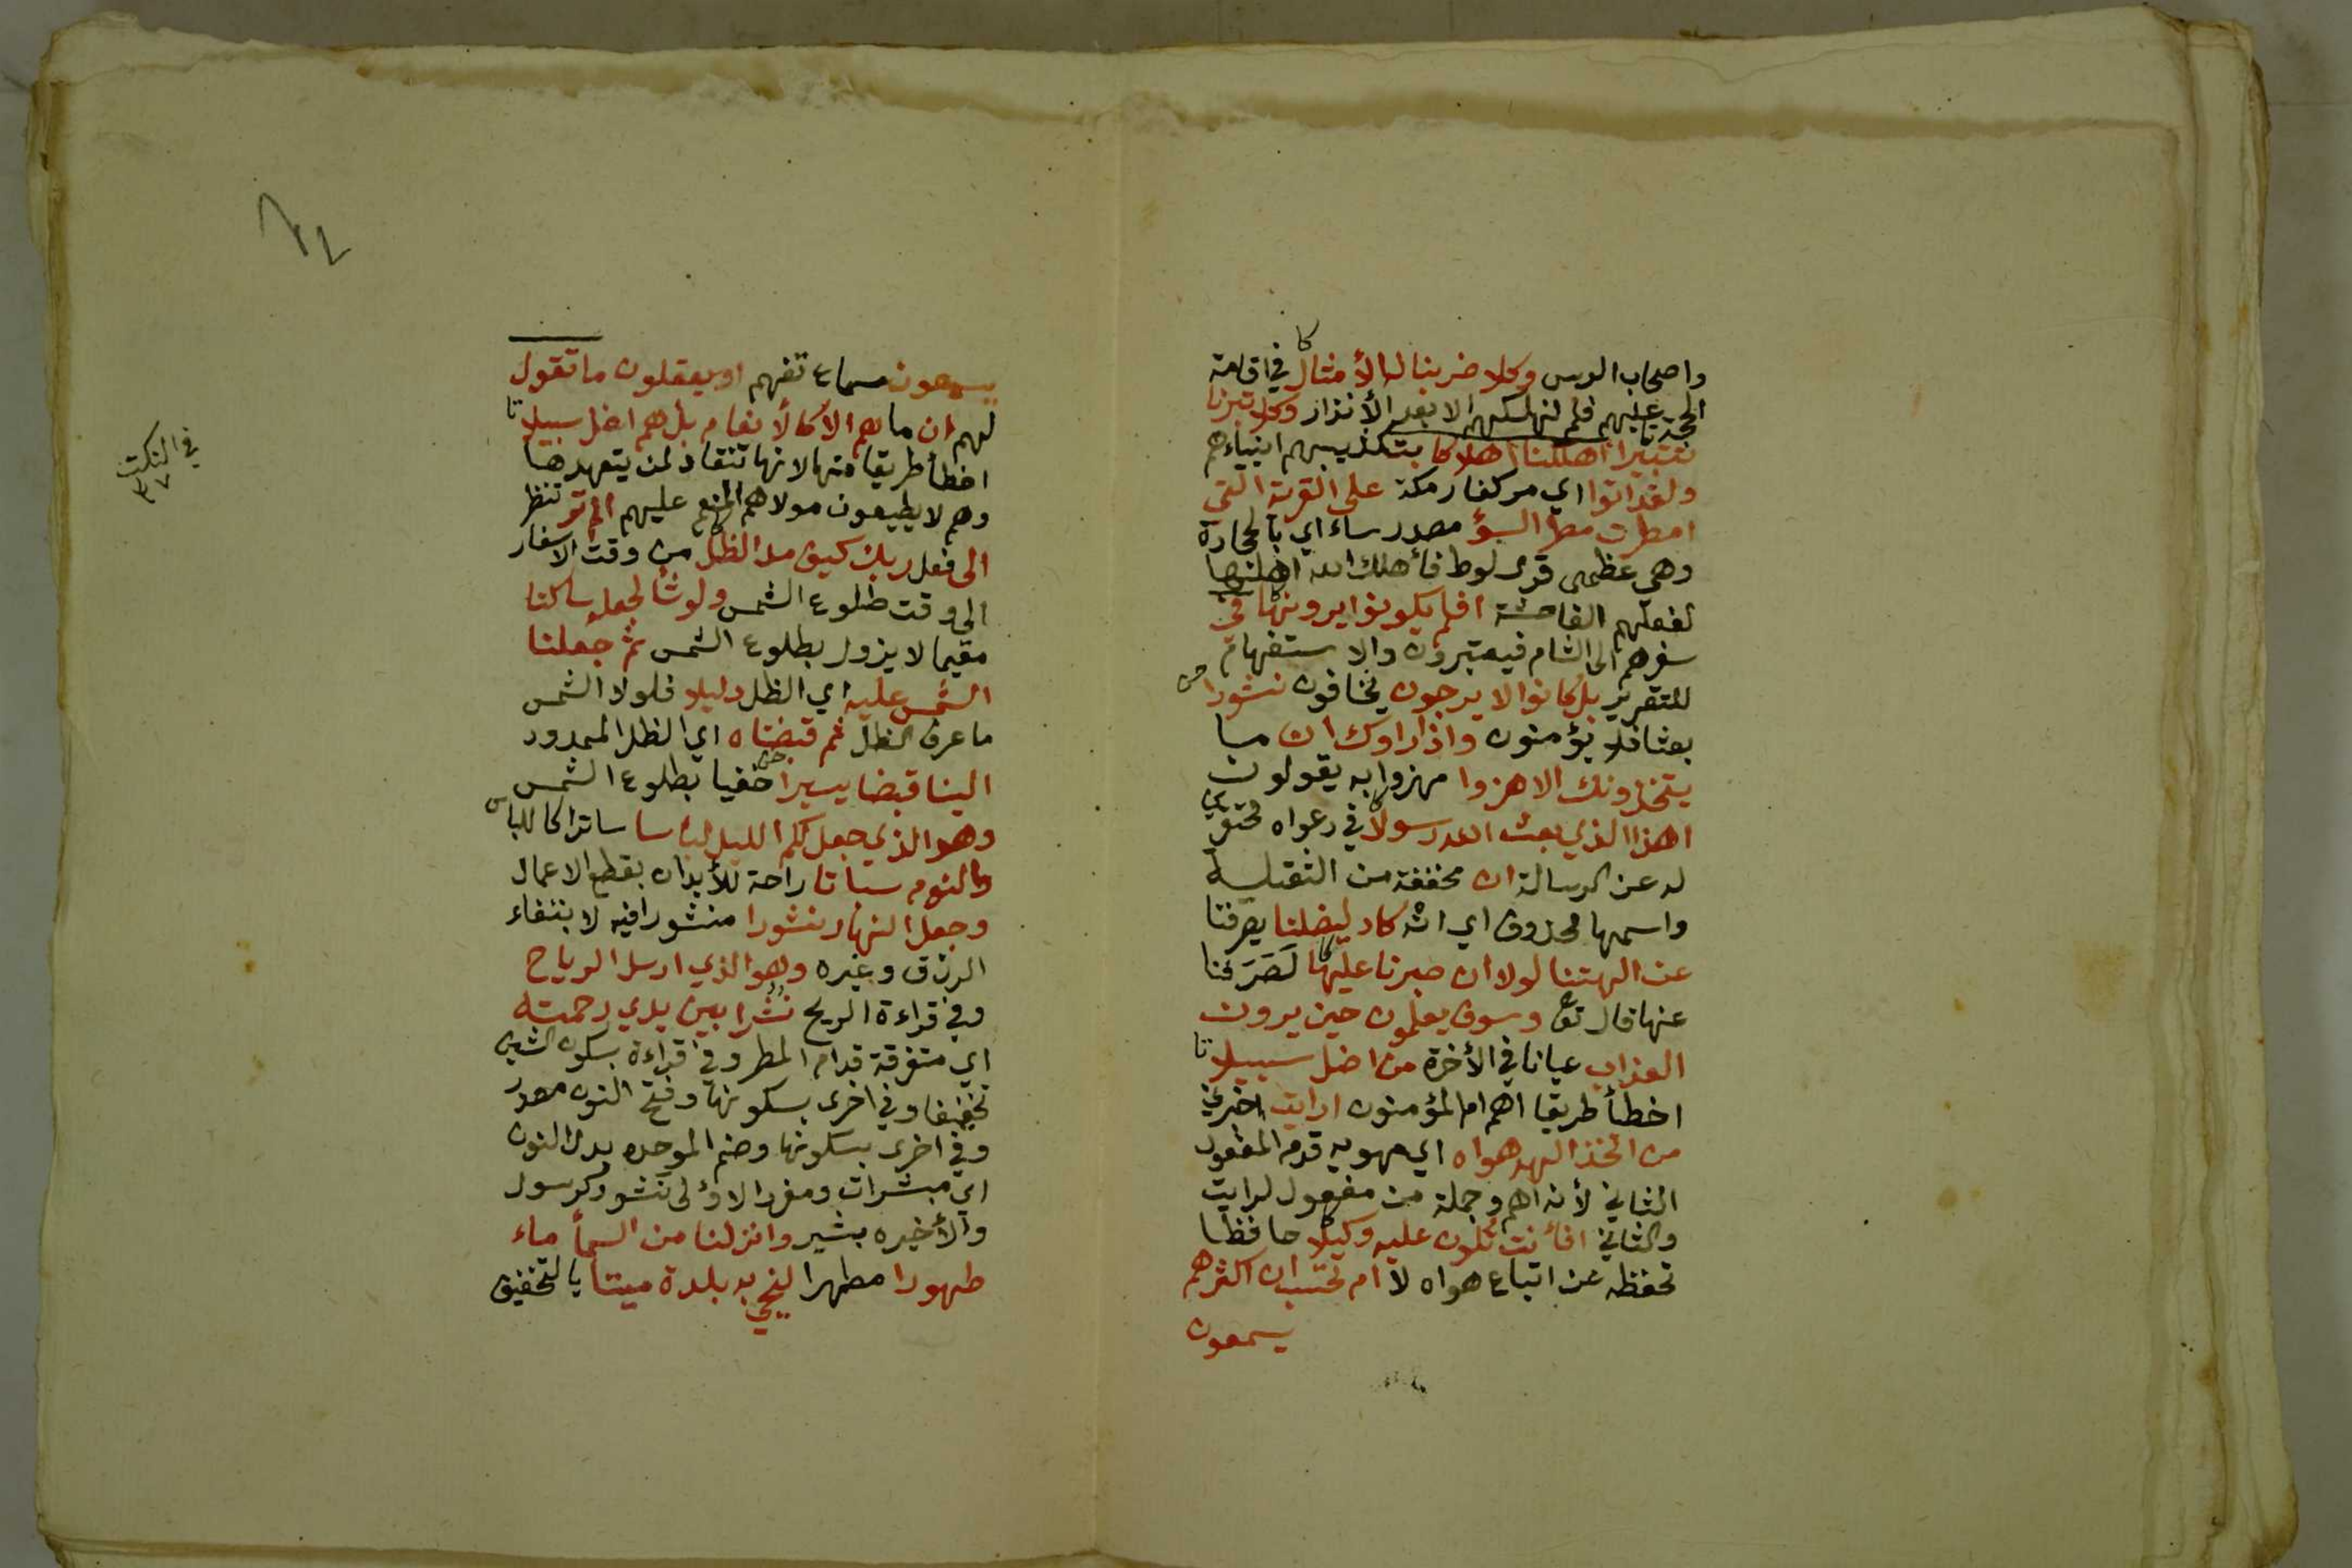 واصحاب الرس وكلا ضربنا له الأمثال في اقامة
الحجة عليهم فلم نهلكهم الا بعد الأنذار وكلا تبرنا
تتبيرا اهلكنا اهلاكا بتكذيبهم انبياءهم
ولقد اتوا اي مر كفار مكة على القرية التي
امطرت مطر السؤ مصدر ساء اي بالحجارة
وهي عظمى قرى لوط فأهلك الله اهلها
لفعلهم الفاحشة افلم يكونوا يرونها في
سفرهم الى الشام فيعتبرون والاستفهام
للتقرير بل كانوا لا يرجون يخافون نشورا
بعثا فلا يؤمنون واذا راوك ان ما
يتخذونك الا هزوا مهزوا به يقولون
اهذا الذي بعث الله رسولا في دعواه محتقرين
له عن الرسالة ان مخففة من الثقيلة
واسمها محذوف اي انه كاد ليضلنا يصرفنا
عن الهتنا لولا ان صبرنا عليها لَصَرَفنا
عنها قال تع وسوف يعلمون حين يرون
العذاب عيانا في الأخرة من اضل سبيلا
اخطأ طريقا اهم ام المؤمنون ارايت اخبرني
من اتخذ الهه هواه اي مهويه قدم المفعول
الثاني لأنه اهم وجملة من مفعول لرايت
والثاني افأنت تكون عليه وكيلا حافظا
تحفظه عن اتباع هواه لا ام تحسب ان اكثرهم
يسمعون
يسمعون سماع تفهم او يعقلون ما تقول
لهم ان ما هم الا كالأنعام بل هم اضل سبيلا
اخطأ طريقا منها لانها تنقاد لمن يتعهدها
وهم لا يطيعون مولاهم المنعم عليهم الم تر تنظر
الى فعل ربك كيف مد الظل من وقت الاسفار
الى وقت طلوع الشمس ولو شأ لجعله ساكنا
مقيما لا يزول بطلوع الشمس ثم جعلنا
الشمس عليه اي الظل دليلا فلولا الشمس
ما عرف الظل ثم قبضناه اي الظل الممدود
الينا قبضا يسيرا خفيا بطلوع الشمس
وهو الذي جعل لكم الليل لباسا ساترا كاللباس
والنوم سباتا راحة للأبدان بقطع الاعمال
وجعل النهار نشورا منشورا فيه لابتغاء
الرزق وغيره وهو الذي ارسل الرياح
وفي قراءة الريح نُشُرا بين يدي رحمته
اي متفرقة قدام المطر وفي قراءة بسكون الشين
تخفيفا وفي اخرى بسكونها وفتح النون مصدر
وفي اخرى بسكونها وضم الموحده بدل النون
اي مبشرات ومفرد الاولى نشور كرسول
والأخيره بشير وانزلنا من السمأ ماء
طهورا مطهرا لنحيي به بلدة ميتا بالتخفيف
في النكت
٣٧